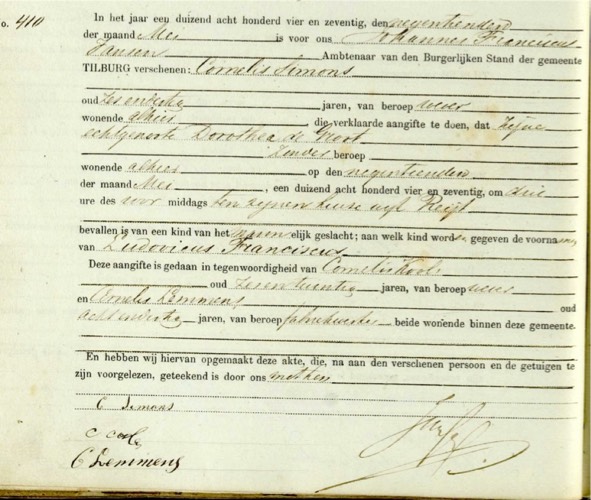 o. 410
In het jaar een duizend acht honderd vier en zeventig, den negentienden
der maand Mei is voor ons Johannes Franciscus
Jansen Ambtenaar van den Burgerlijken Stand der gemeente
TILBURG verschenen: Cornelis Simons
oud zesendertig jaren, van beroep wever
wonende alhier, die verklaarde aangifte te doen, dat zijne
echtgenoote Dorothea de
zonder beroep
wonende alhier op den negentienden
der maand Mei, een duizend acht honderd vier en zeventig, om drie
ure des voor middags ten zijnen huize wijk
bevallen is van een kind van het mannelijk geslacht; aan welk kind worden gegeven de voornamen
van Ludovicus Franciscus
Deze aangifte is gedaan in tegenwoordigheid van Cornelis
oud zevenentwintig jaren, van beroep wever
en Cornelis Lemmens oud
achtendertig jaren, van beroep fabriekwerker beide wonende binnen deze gemeente.
En hebben wij hiervan opgemaakt deze akte, die, na aan den verschenen persoon en de getuigen te
zijn voorgelezen, geteekend is door ons met hen
C Simons
C
C Lemmens